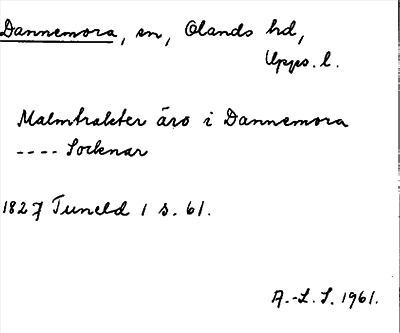 Dannemora, sn, Olands hd,
Upps. l.
Malmtrakter äro i Dannemora
---- Socknar
1827 Tuneld 1 s. 61.
A.-L. S. 1961.